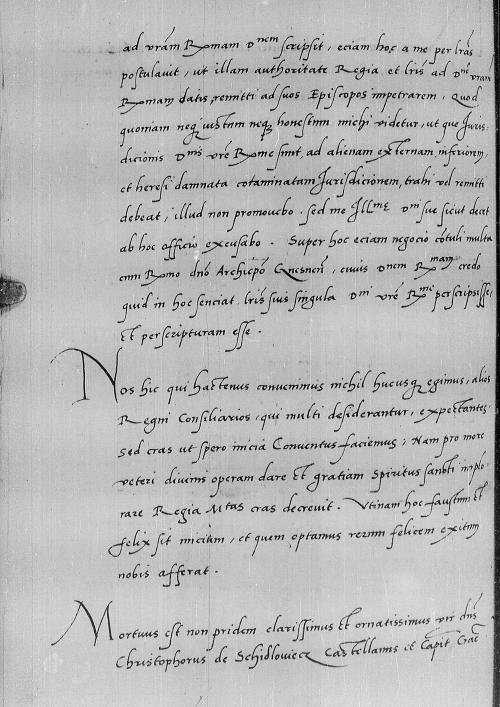 ad vram Rmam dnem scripsit, eciam hoc a me per lras
postulauit, ut illam authoritate Regia et lris ad dnem vram
Rmam datis, remitti ad suos Episcopos impetrarem, Quod
quoniam neq iustum neq honestum michi videtur, ut que Juris:
dicionis dnis vre Rme sunt, ad alienam externam, inferiorem,
et heresi damnata cotaminatam Jurisdicionem, trahi vel remitti
debeat, illud non promouebo. sed me Illme dni sue sicut decet
ab hoc officio excusabo. Super hoc eciam negocio cotuli multa
cum Rmo dno Archiepo Gnesnen, cuius dnem Rmam credo
quid in hoc senciat lris suis singula dni vre Rme perscripsisse,
Et perscripturam esse.
Nos hic qui hactenus conuenimus nichil hucusq egimus, alios
Regni Consiliarios, qui multi desiderantur, expectantes.
Sed cras ut spero inicia Conuentus faciemus, Nam pro more
veteri diuinis operam dare Et gratiam Spiritus sancti implo:
rare Regia Mtas cras decreuit. Vtinam hoc faustum Et
felix sit inicium, et quem optamus rerum felicem exitum
nobis afferat.
Mortuus est non pridem clarissimus Et ornatissimus vir dns
Christophorus de Schidlouiecz Castellanus et Capit Crac